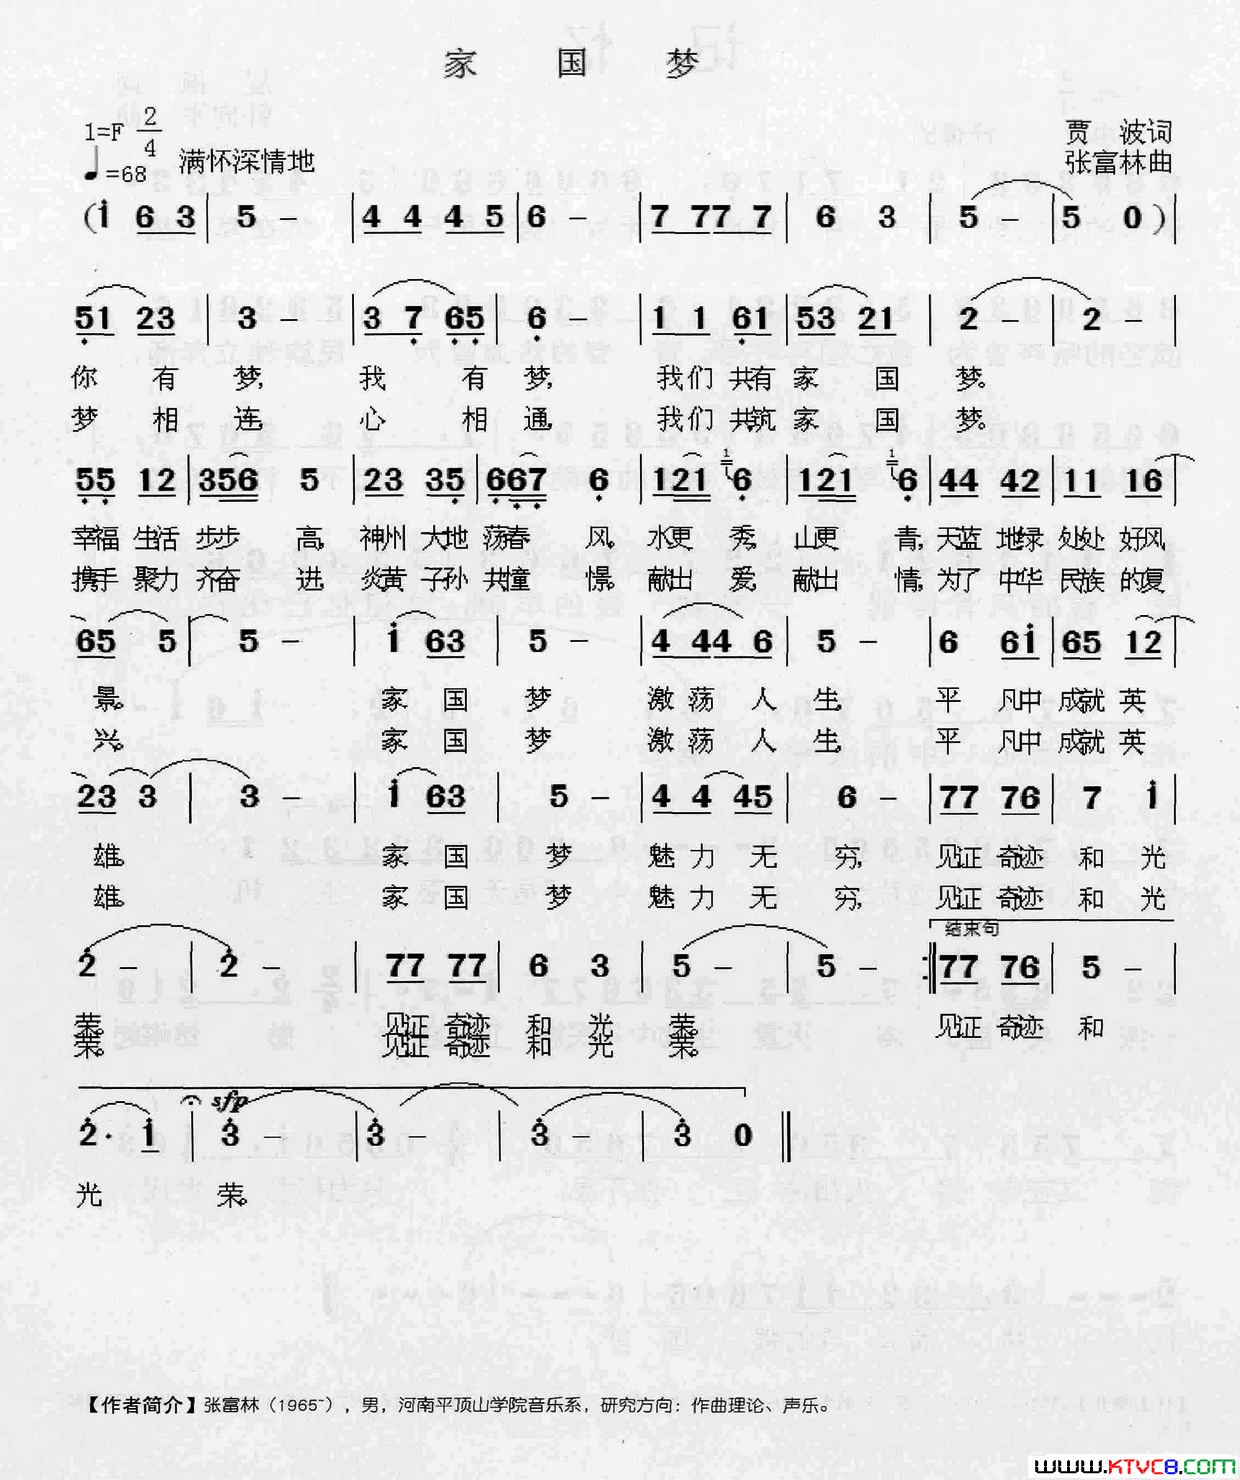 家 国 梦
1=F 2/4
♩=68 满怀深情地
贾 波词
张富林曲
(i 6 3 | 5 - | 4 4 4 5 | 6 - | 7 77 7 | 6 3 | 5 - | 5 0 ) |
51 23 | 3 - | 3 7 65 | 6 - | 1 1 61 | 53 21 | 2 - | 2 - |
你 有 梦, 我 有 梦, 我们 共有 家 国 梦。
梦 相 连, 心 相 通, 我们 共筑 家 国 梦。
55 12 | 356 5 | 23 35 | 667 6 | 121 1 6 | 121 1 6 | 44 42 | 11 16 |
幸福 生活 步步 高, 神州 大地 荡春 风, 水更 秀, 山更 青, 天蓝 地绿 处处 好风
携手 聚力 齐奋 进, 炎黄 子孙 共憧 憬。 献出 爱, 献出 情, 为了 中华 民族 的复
65 5 | 5 - | i 63 | 5 - | 4 44 6 | 5 - | 6 6i | 65 12 |
景。 家 国 梦 激 荡 人 生, 平 凡中 成就 英
兴。 家 国 梦 激 荡 人 生, 平 凡中 成就 英
23 3 | 3 - | i 63 | 5 - | 4 4 45 | 6 - | 77 76 | 7 i |
雄。 家 国 梦 魅 力 无 穷, 见证 奇迹 和 光
雄。 家 国 梦 魅 力 无 穷, 见证 奇迹 和 光
结束句
2 - | 2 - | 77 77 | 6 3 | 5 - | 5 - :‖ 77 76 | 5 - |
荣。 见证 奇迹 和 光 荣。 见证 奇迹 和
荣。 见证 奇迹 和 光 荣。
sfp
2· i | 3 - | 3 - | 3 - | 3 0 ‖
光 荣。
【作者简介】张富林（1965~），男，河南平顶山学院音乐系，研究方向：作曲理论、声乐。
www.KTVC8.com